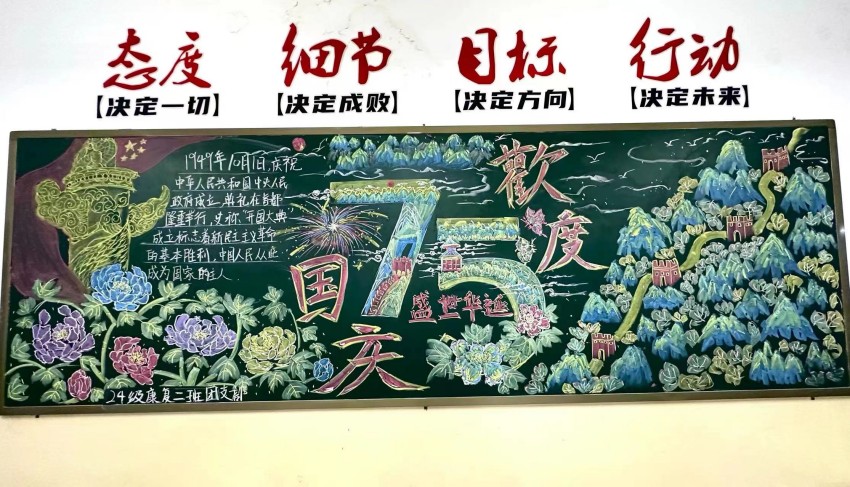 态度 细节 目标 行动
【决定一切】 【决定成败】 【决定方向】 【决定未来】
1949年10月1日,庆祝
中华人民共和国中央人民
政府成立典礼在首都
隆重举行,史称"开国大典"
成立标志着新民主主义革命
的基本胜利,中国人民从此
成为国家的主人
75
歡度
国庆
盛世华诞
24级康复二班团支部